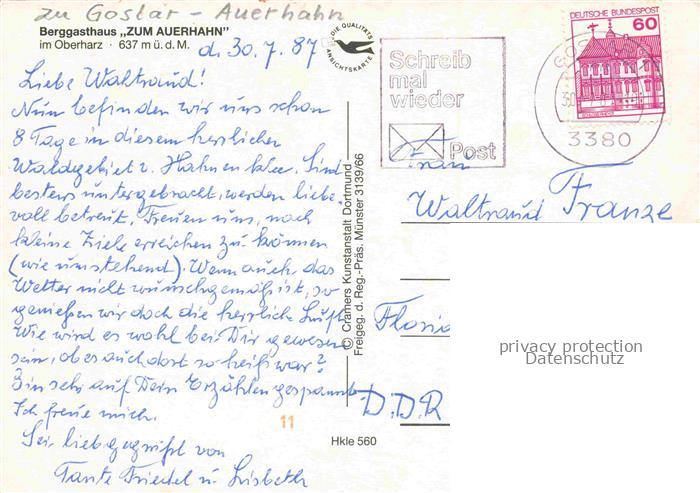 zu Goslar - Auerhahn
Berggasthaus „ZUM AUERHAHN"
im Oberharz · 637 m ü. d. M.
d. 30.7.87
DIE QUALITÄTS ANSICHTSKARTE
Liebe Waltraud!
Nun befinden wir uns schon
8 Tage in diesem herrlichen
Waldgebiet v. Hahnenklee. Sind
bestens untergebracht, werden liebe-
voll betreut. Freuen uns, noch
kleine Ziele erreichen zu können
(wie umstehend). Wenn auch das
Wetter nicht wunschgemäß ist, so
genießen wir doch die herrliche Luft.
Wie wird es wohl bei Dir gewesen
sein, ob es auch dort so heiß war?
Bin sehr auf Dein Erzählen gespannt.
Ich freue mich.
Sei lieb gegrüßt von
Tante Friedel u. Lisbeth
11
Hkle 560
© Cramers Kunstanstalt Dortmund
Freigeg. d. Reg.-Präs. Münster 3139/66
Schreib
mal
wieder
Post
DEUTSCHE BUNDESPOST
60
3380
Frau
Waltraud Franze
Florid
D.D.R
privacy protection
Datenschutz